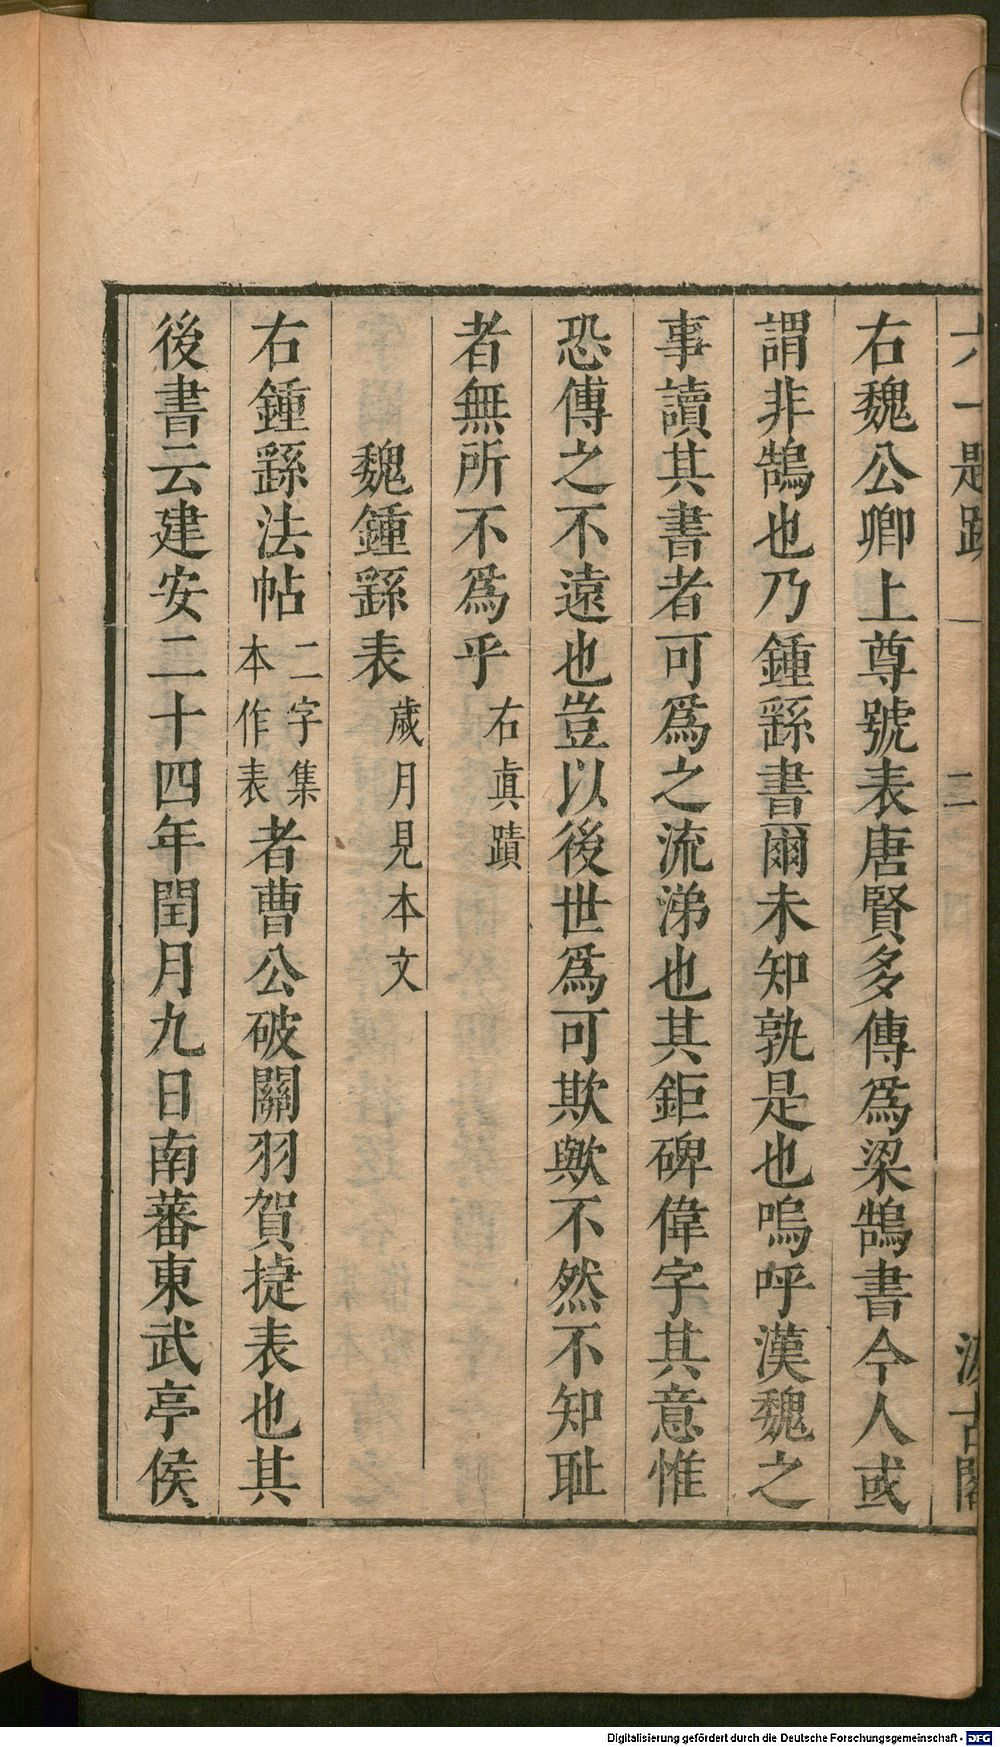 六一題跋 一 二 汲古閣
右魏公卿上尊號表唐賢多傳爲梁鵠書今人或
謂非鵠也乃鍾繇書爾未知孰是也嗚呼漢魏之
事讀其書者可爲之流涕也其鉅碑偉字其意惟
恐傳之不遠也豈以後世爲可欺歟不然不知耻
者無所不爲乎 右眞蹟
魏鍾繇表 歲月見本文
右鍾繇法帖 二字集本作表 者曹公破關羽賀捷表也其
後書云建安二十四年閏月九日南蕃東武亭侯
Digitalisierung gefördert durch die Deutsche Forschungsgemeinschaft - DFG